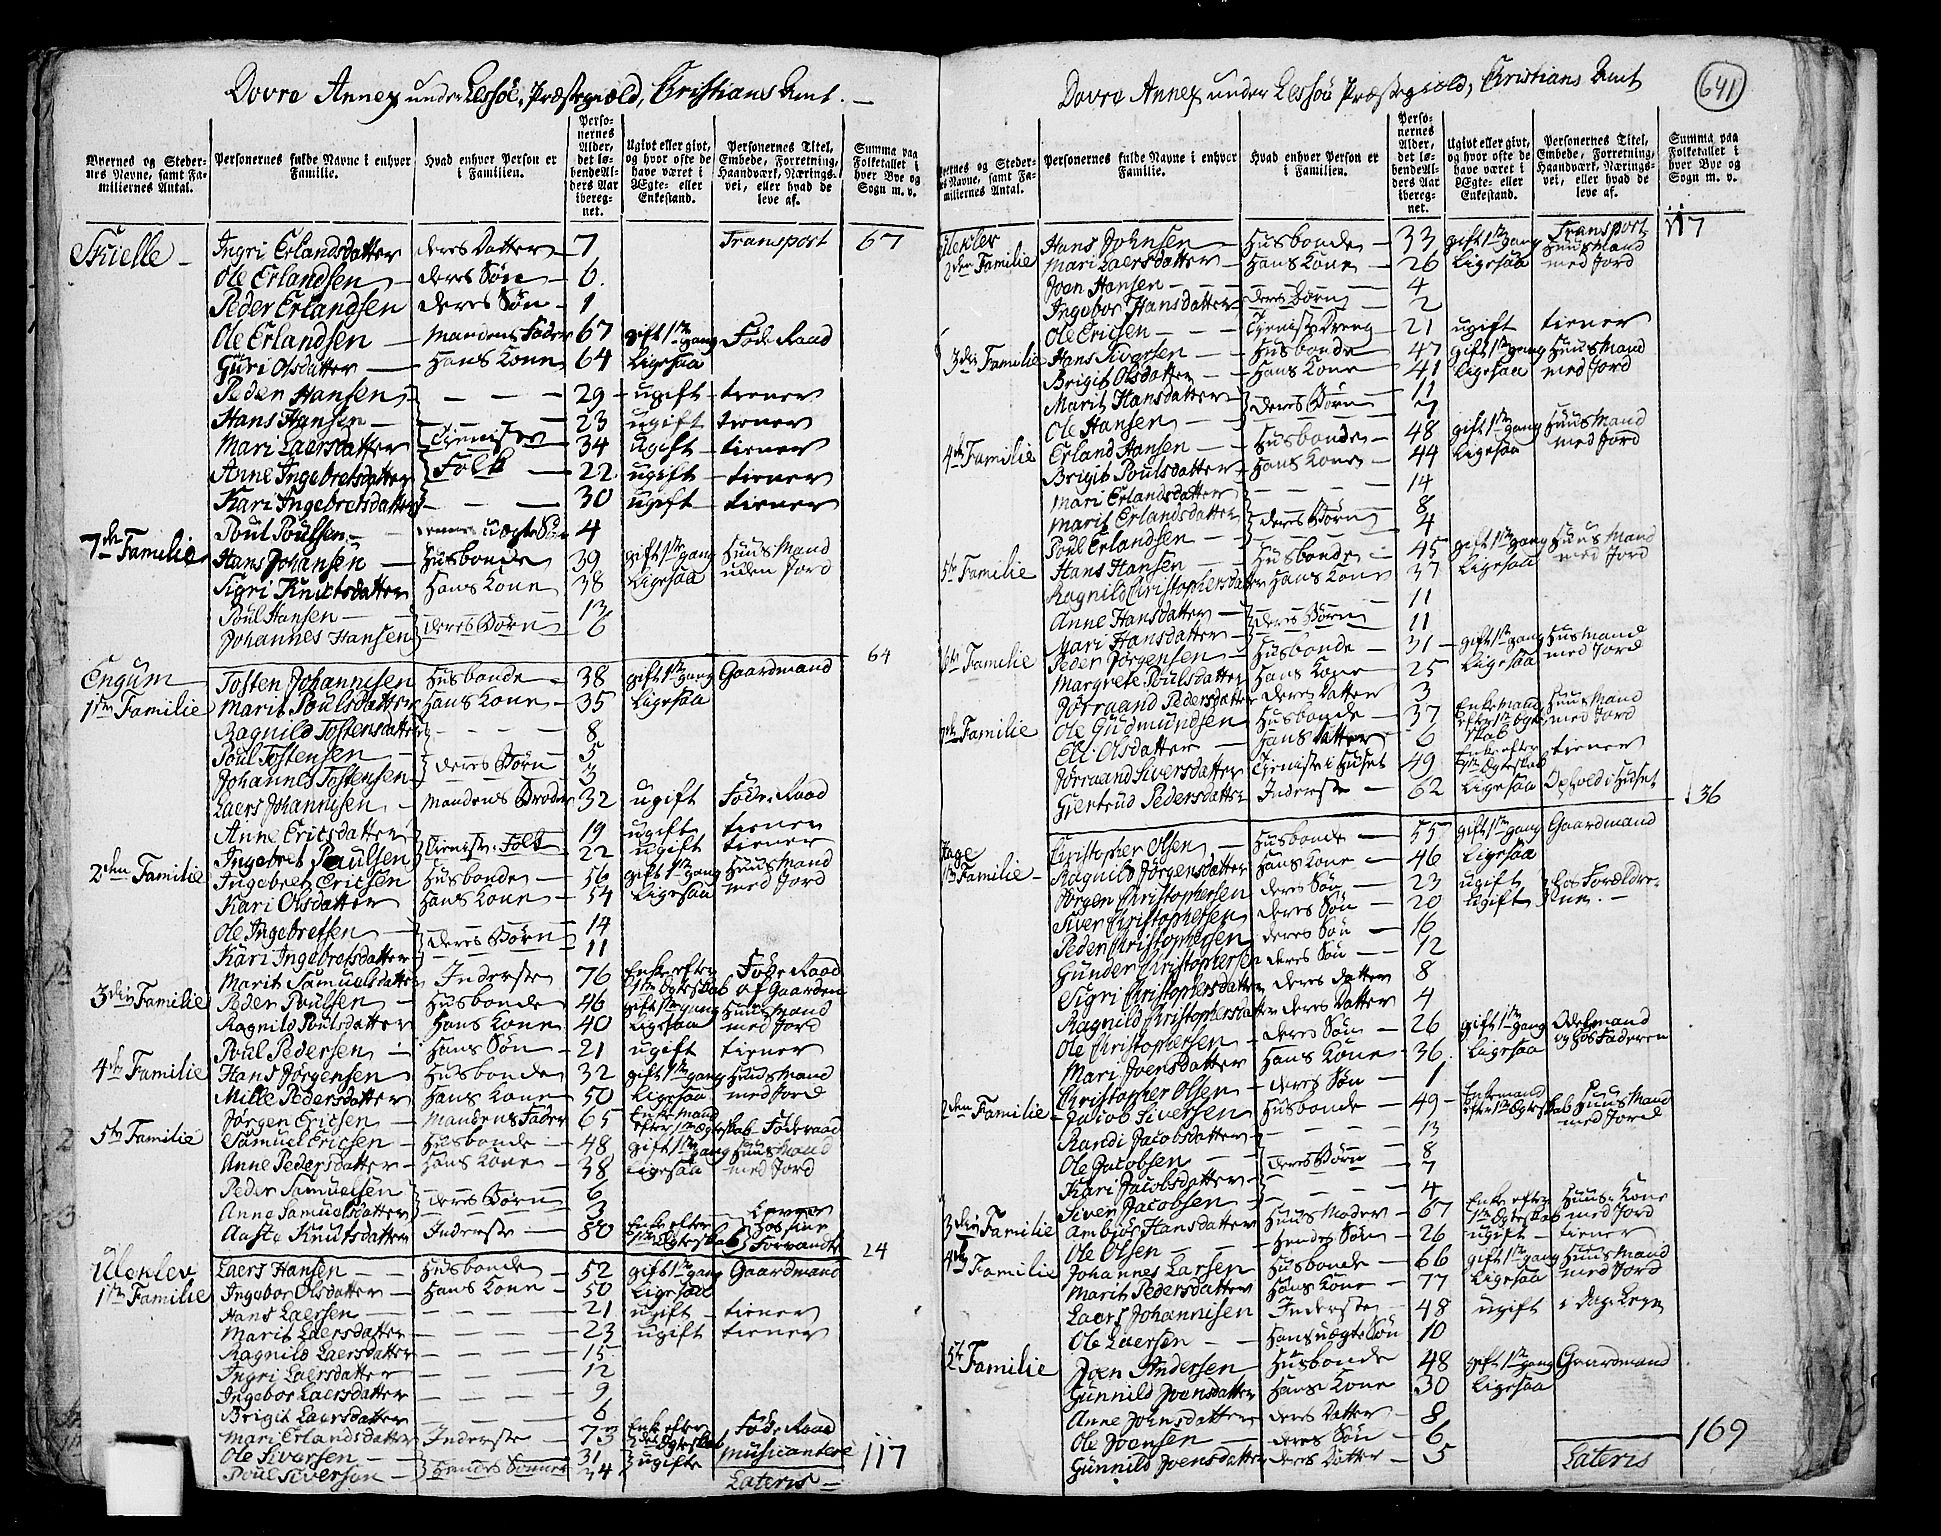 Dovre Annex under Lessøe, Præstegiæld, Christians Amt.
Byernes og Stedernes Navne, samt Familiernes Antal.
Personernes fulde Navne i enhver Familie.
Hvad enhver Person er i Familien.
Personernes Alder, det løbende Alders Aar iberegnet.
Ugivt eller givt, og hvor ofte de have været i Ægte- eller Enkestand.
Personernes Titel, Embede, Forretning, Haandværk, Næringsvei, eller hvad de leve af.
Summa paa Folketallet i hver Bye og Sogn m. v.
Ingri Erlandsdatter deres Datter 7 Transport 67
Ole Erlandsen deres Søn 6
Peder Erlandsen deres Søn 1
Ole Erlandsen Mandens Fader 67 gift 1ste gang Føde Raad
Guri Olsdatter Hans Kone 64 Ligesaa
Peder Hansen 29 ugift tiener
Hans Hansen 23 ugift tiener
Mari Laersdatter Tieniste 34 ugift tiener
Anne Ingebretsdatter Folk 22 ugift tiener
Kari Ingebretsdatter 30 ugift tiener
Poul Poulsen uægte Søn 4
7de Familie Hans Johansen Husbonde 39 gift 1ste gang Huus Mand
Sigri Knutsdatter Hans Kone 38 Ligesaa uden Jord
Poul Hansen 13
Johannes Hansen deres Børn 6
64
Engum Tosten Johannisen Husbonde 38 gift 1ste gang Gaardmand
1ste Familie Marit Poulsdatter Hans Kone 35 Ligesaa
Ragnild Tostensdatter 8
Poul Tostensen 5
Johannes Tostensen deres Børn 3
Laers Johannisen Mandens Broder 32 ugift Føde Raad
Anne Ericsdatter 19 ugift tiener
Ingebret Poulsen Tieniste Folk 22 ugift tiener
2den Familie Ingebret Ericsen Husbonde 56 gift 1ste gang Huus Mand
Kari Olsdatter Hans Kone 54 Ligesaa med Jord
Ole Ingebretsen 14
Kari Ingebretsdatter deres Børn 11
Marit Samuelsdatter Inderste 76 Enke efter 1ste Ægteskab Føde Raad af Gaarden
3die Familie Peder Poulsen Husbonde 46 gift 1ste gang Huus Mand
Ragnild Poulsdatter Hans Kone 40 Ligesaa med Jord
Poul Pedersen Hans Søn 21 ugift tiener
4de Familie Hans Jørgensen Husbonde 32 gift 1ste gang Huus Mand
Mille Pedersdatter Hans Kone 50 Ligesaa med Jord
Jørgen Ericsen Mandens Fader 65 Enke Mand efter 1ste Ægteskab Føderaad
5te Familie Samuel Ericsen Husbonde 48 gift 1ste gang Huus Mand
Anne Pedersdatter Hans Kone 38 Ligesaa med Jord
Peder Samuelsen 6
Anne Samuelsdatter deres Børn 3
Aaste Knutsdatter Inderste 80 Enke efter 1ste Ægteskab Lever hos sine Forvandte 24
Uleklev Laers Hansen Husbonde 52 gift 1ste gang Gaardmand
1ste Familie Ingebor Olsdatter Hans Kone 50 Ligesaa
Hans Laersen 21 ugift tiener
Marit Laersdatter 23 ugift tiener
Ragnild Laersdatter 15
Ingri Laersdatter 12
Ingebor Laersdatter 9
Brigit Laersdatter 6
Mari Erlandsdatter Inderste 73 Enke efter Ægteskab Føde Raad
Ole Siversen 31
Poul Siversen Hendes Sønner 34 ugifte Musicantere 117
Lateris
Dovre Annex under Lessøe Præstegiæld, Christians Amt
641
Byernes og Stedernes Navne, samt Familiernes Antal.
Personernes fulde Navne i enhver Familie.
Hvad enhver Person er i Familien.
Personernes Alder, det løbende Alders Aar iberegnet.
Ugivt eller givt, og hvor ofte de have været i Ægte- eller Enkestand.
Personernes Titel, Embede, Forretning, Haandværk, Næringsvei, eller hvad de leve af.
Summa paa Folketallet i hver Bye og Sogn m. v.
Transport 117
Uleklev Hans Johnsen Husbonde 33 gift 1ste gang Huus Mand
2den Familie Mari Laersdatter Hans Kone 26 Ligesaa med Jord
Joen Hansen 4
Ingebor Hansdatter deres Børn 2
Ole Ericsen Tieniste Dreng 21 ugift tiener
3die Familie Hans Siversen Husbonde 47 gift 1ste gang Huus Mand
Brigit Olsdatter Hans Kone 41 Ligesaa med Jord
Marit Hansdatter 11
Ole Hansen deres Børn 7
4de Familie Erland Hansen Husbonde 48 gift 1ste gang Huus Mand
Brigit Poulsdatter Hans Kone 44 Ligesaa med Jord
Mari Erlandsdatter 14
Marit Erlandsdatter deres Børn 8
Poul Erlandsen 4
5te Familie Hans Hansen Husbonde 45 gift 1ste gang Huus Mand
Ragnild Christophersdatter Hans Kone 37 Ligesaa med Jord
Anne Hansdatter 11
Mari Hansdatter deres Børn 11
6te Familie Peder Jørgensen Husbonde 31 gift 1ste gang Husmand
Margrete Poulsdatter Hans Kone 25 Ligesaa med Jord
Jørraand Pedersdatter deres Datter 3
7de Familie Ole Gudmundsen Husbonde 37 Enkemand efter 1ste Ægteskab Huus Mand med Jord
Eli Olsdatter Hans Datter 6
Jørraand Siversdatter Tieniste i Huset 49 Enke efter 1ste Ægteskab tiener
Giertrud Pedersdatter Inderste 62 Ligesaa Ophold i Huset 36
Christopher Olsen Husbonde 55 gift 1ste gang Gaardmand
1ste Familie Ragnild Jørgensdatter Hans Kone 46 Ligesaa
Jørgen Christophersen deres Søn 23 ugift hos Forældrene
Siver Christophersen deres Søn 20 ugift
Peder Christophersen deres Søn 16
Gunder Christophersen deres Søn 12
Sigri Christophersdatter deres datter 8
Ragnild Christophersdatter deres Datter 4
Ole Christophersen deres Søn 26 gift 1ste gang Odelmand
Mari Joensdatter Hans Kone 36 Ligesaa og hos Faderen
Christopher Olsen deres Søn 1
2den Familie Jacob Siversen Husbonde 49 Enkemand efter 1ste Ægteskab Huus Mand med Jord
Randi Jacobsdatter 13
Ole Jacobsen 8
Kari Jacobsdatter deres Børn 7
Siver Jacobsen 4
3die Familie Ambjør Hansdatter Huus Moder 67 Enke efter 1ste Ægteskab Huus Kone med Jord
Ole Olsen Hendes Søn 26 ugift tiener
4de Familie Johannes Larsen Husbonde 66 gift 1ste gang Huus Mand
Marit Pedersdatter Hans Kone 77 Ligesaa med Jord
Laers Johannisen Inderste 48 ugift i Dag Leye
Ole Laersen Hans uægte Søn 10
5te Familie Joen Andersen Husbonde 48 gift 1ste gang Gaardmand
Gunnild Joensdatter Hans Kone 30 Ligesaa
Anne Johnsdatter deres Datter 8
Ole Joensen deres Søn 6
Gunnild Joensdatter deres Datter 5
Lateris 169